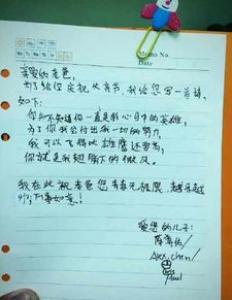 Memo No.
Date
亲爱的老爸,
为了给您庆祝父亲节,我给您写一首诗,
如下:
你知不知道你一直是我心目中的英雄,
为了你我会付出我一切的努力,
我可以飞得比雄鹰还要高,
你就是我翅膀下的微风。
我在此祝老爸您青春无
万事如意!
爱您的儿子:
Alex.chen/
Paul